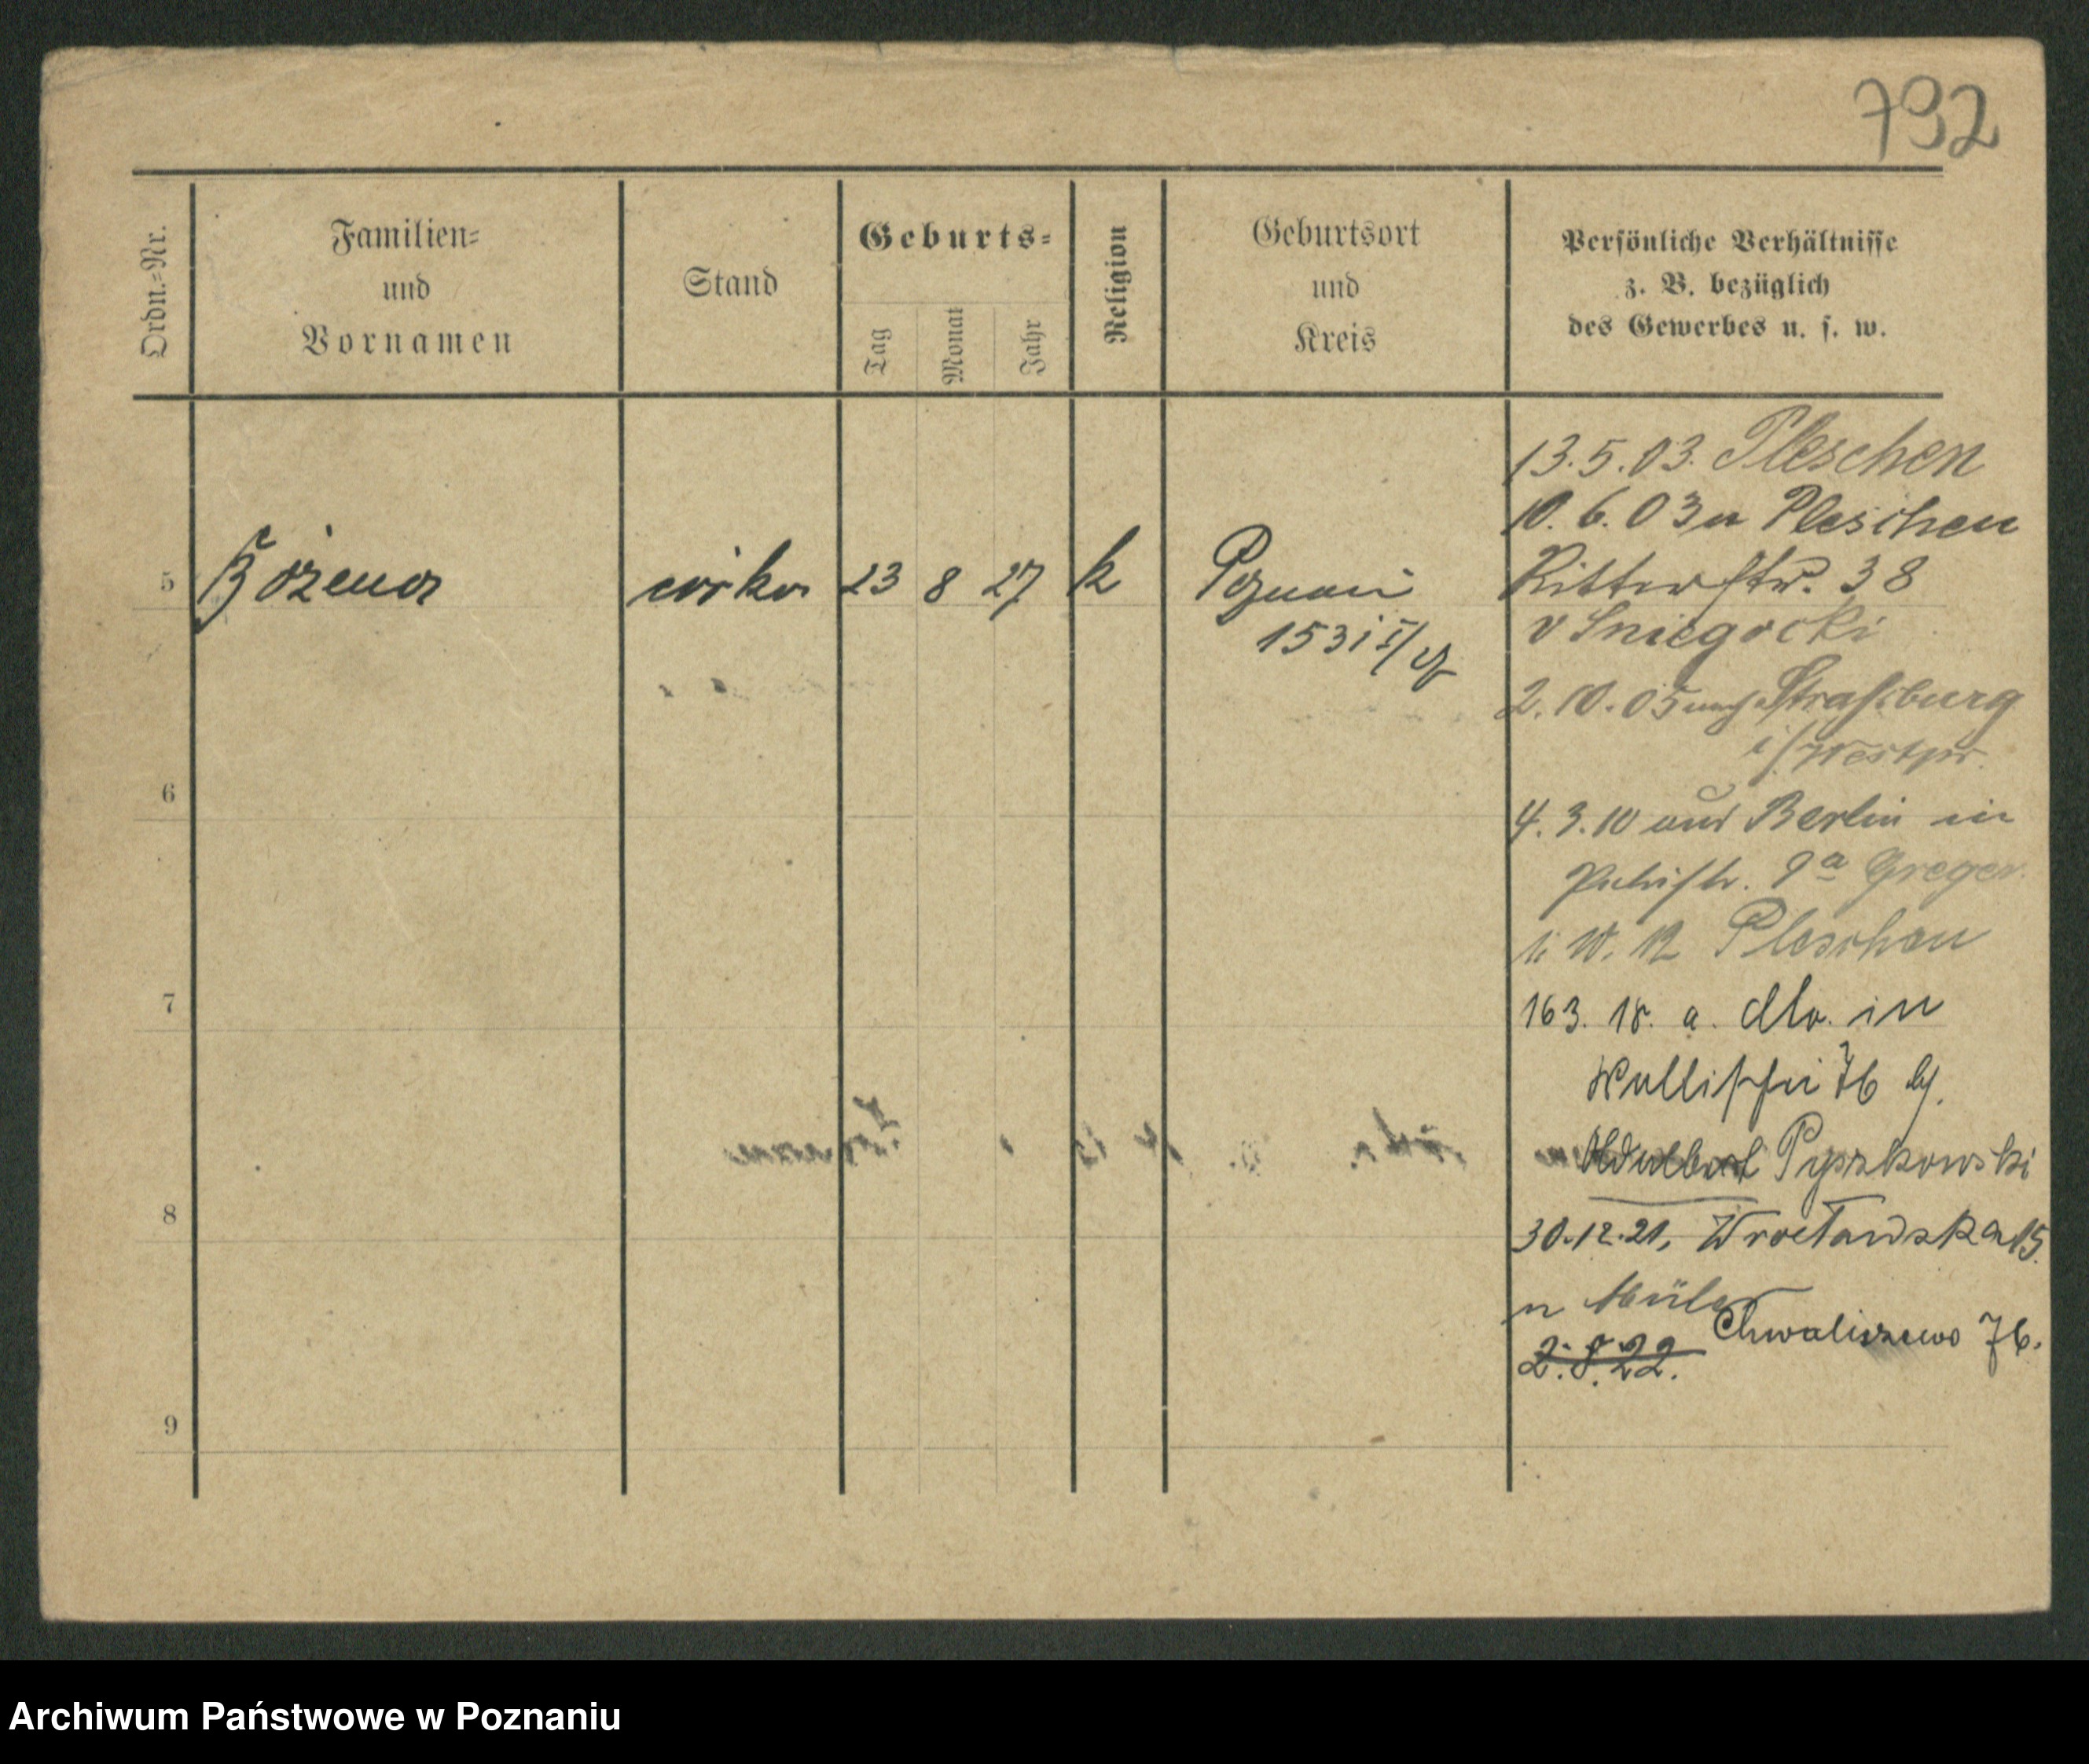 792
Ordn.-Nr.
Familien-
und
Vornamen
Stand
Geburts-
Tag
Monat
Jahr
Religion
Geburtsort
und
Kreis
Persönliche Verhältnisse
z. B. bezüglich
des Gewerbes u. s. w.
5 Bożena córka 23 8 27 k Poznań
1531
6
7
8
9
13.5.03. Pleschen
10.6.03 Pleschen
Ritterstr. 38
v Sniegocki
2.10.05 nach Straßburg
i/Westpr.
4.3.10 aus Berlin in
9a Greger
Pleschen
163. 18. a. dto. in
Wallischei 76 b/.
Adalbert Pyszkowski
30.12.21, Wrocławska 15.
Chwaliszewo 76.
2.8.22.
Archiwum Państwowe w Poznaniu